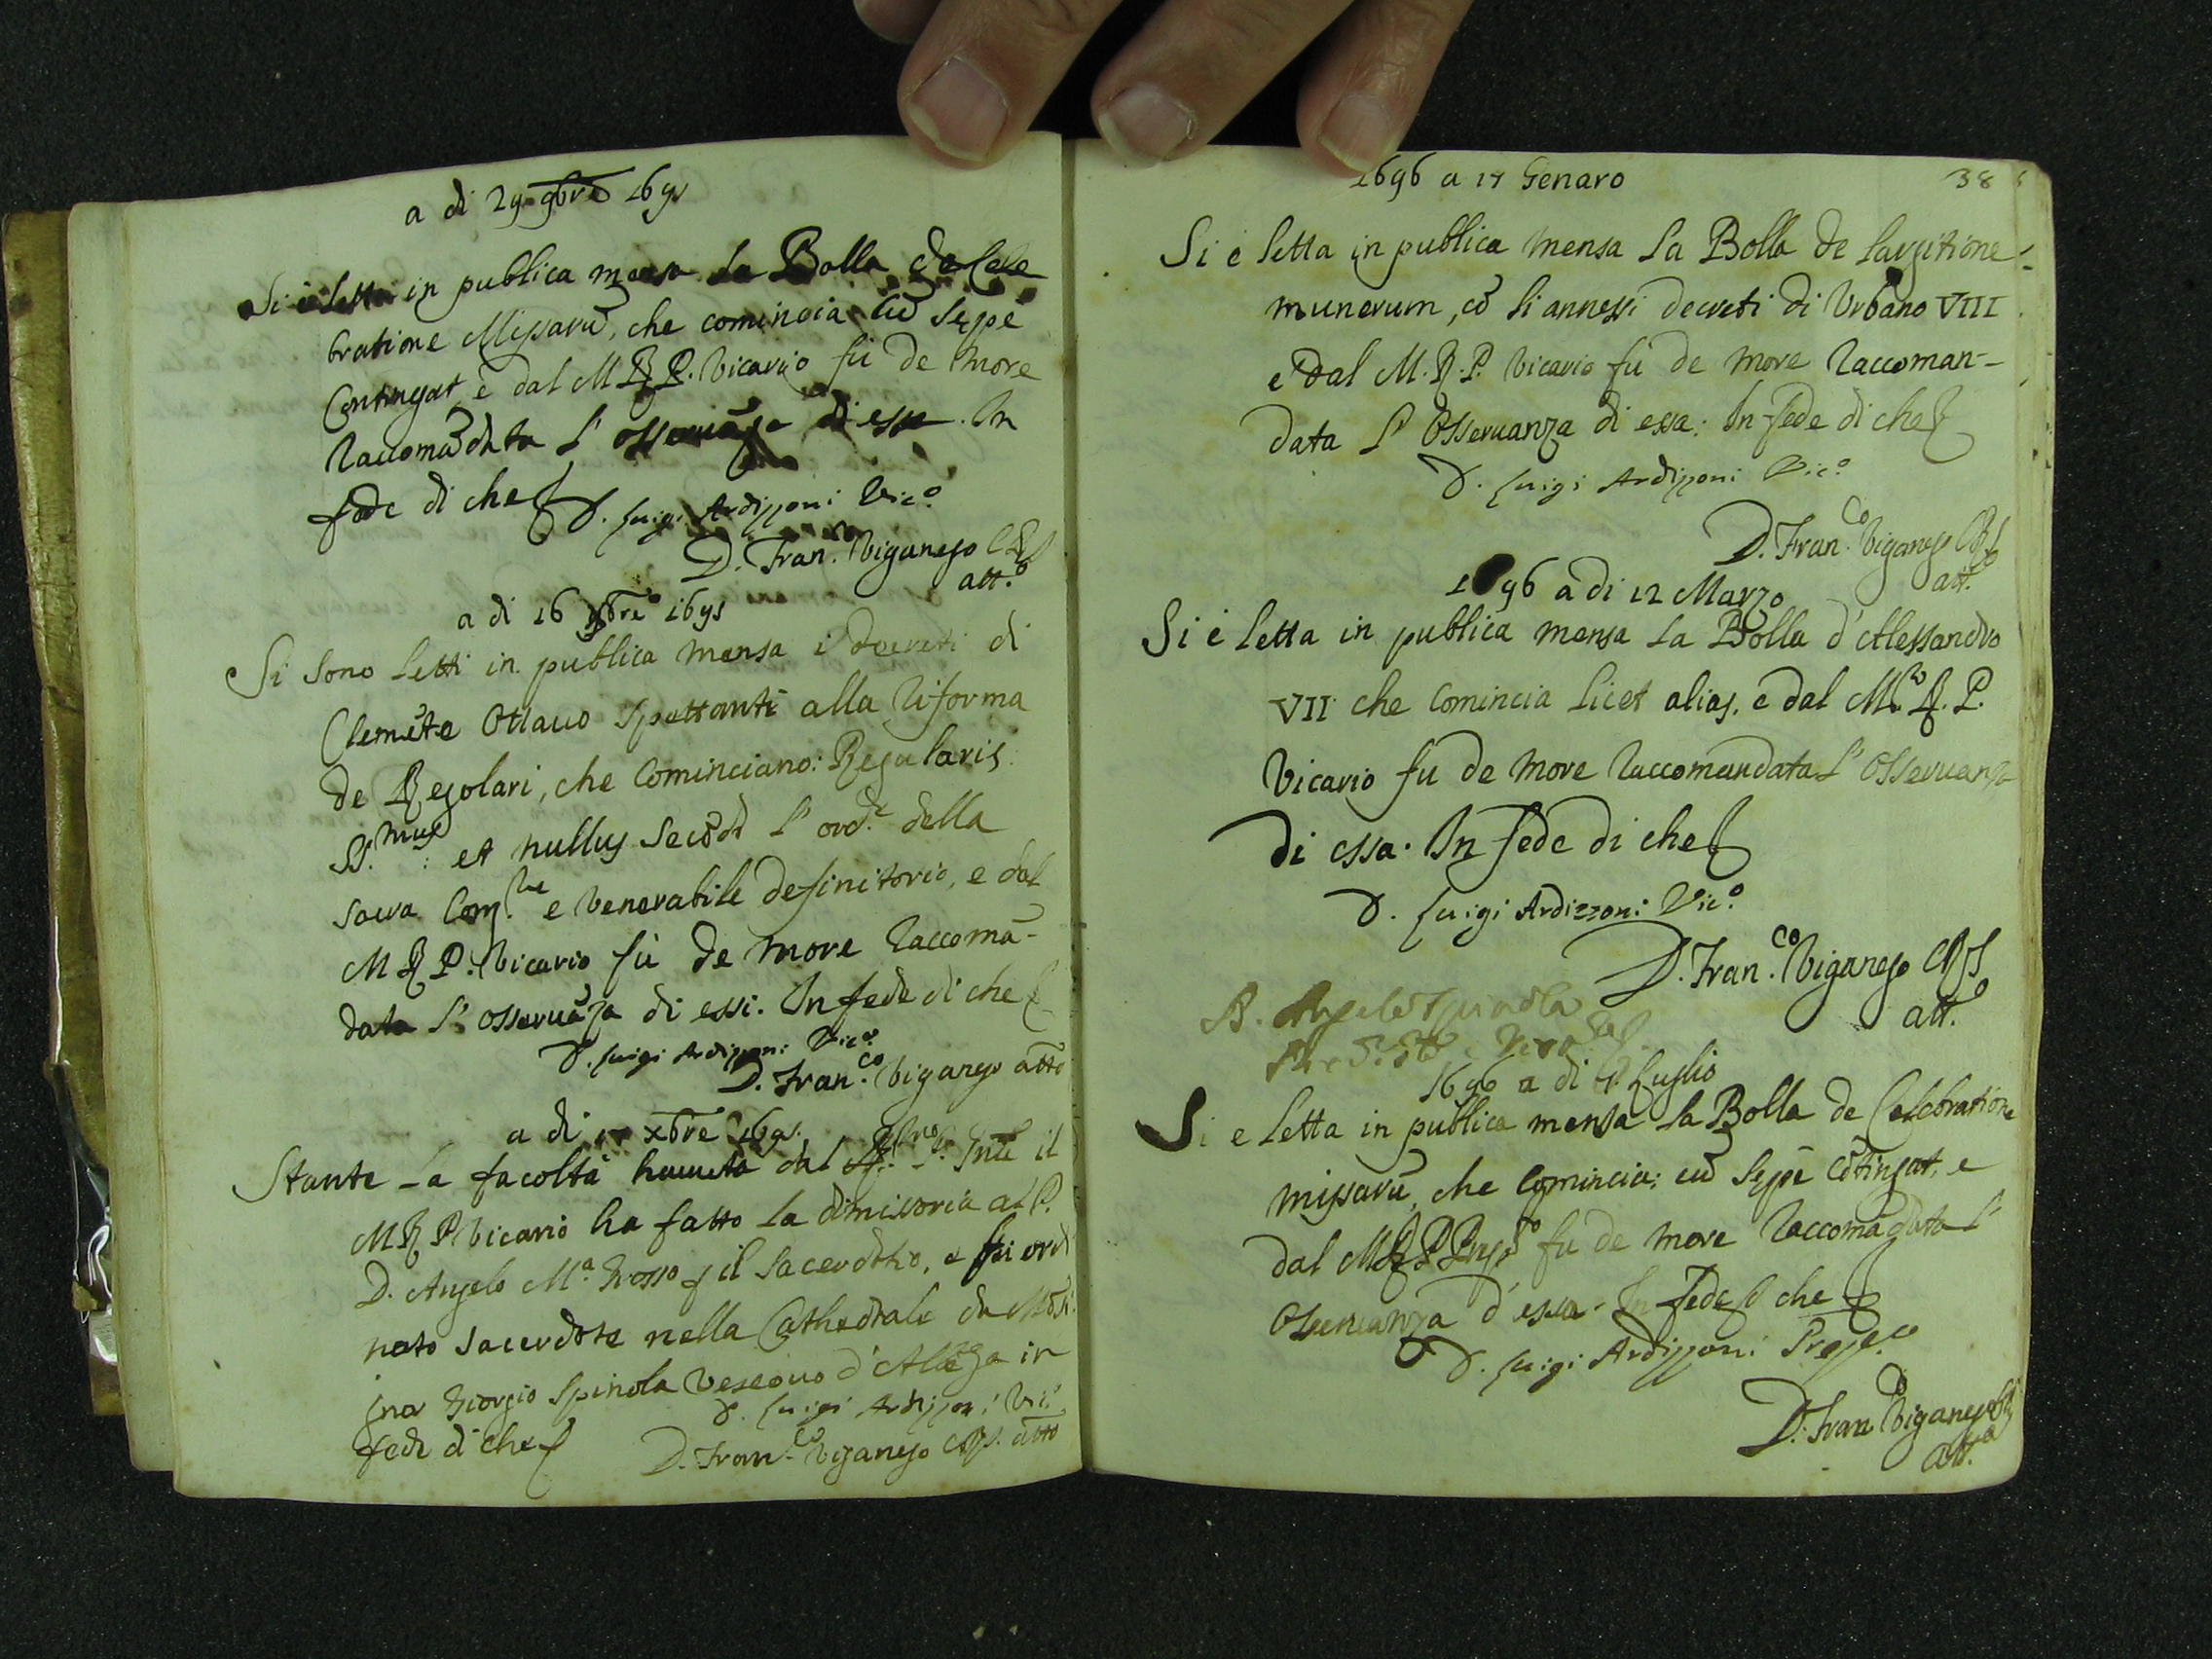 a di 29 9bre 1695
Si è letta in publica mensa la Bolla de Cele
bratione Missarũ, che comincia cũ sepe
Contingat, e dal M R P. Vicario fù de more
raccomãdata l' osseruãza di essa. In
fede di che
D. Luigi Ardizzoni Vic.o
D. Fran. Viganego CRS
att.o
a di 16 xbre 1695
Si sono letti in publica mensa i decreti di
Clemẽte Ottauo spettanti alla riforma
de Regolari, che cominciano: Regularis
SS.mus : et nullus secõdo l' ord.e della
sacra Cong.ne e Venerabile definitorio, e dal
M R P. Vicario fù de more raccomã-
data l' osseruãza di essi. In fede di che
D. Luigi Ardizzoni Vic.o
D. Fran.co Viganego atto
a di xbre 1695.
Stante la facoltà hauuta dal il
M R P Vicario ha fatto la dimissoria al P.
D. Angelo M.a Grosso il sacerdotio, e fù ordi
nato sacerdote nella Cathedrale da Mõsi.
gnor Giorgio Spinola Vescouo d' Albẽga in
fede di che
D. Luigi Ardizzoni Vic.
D. Fran.co Viganego CRS. atto
38
1696 a 17 Genaro
Si è letta in publica mensa la Bolla de largitione
munerum, cõ li annessi decreti di Vrbano VIII
e dal M. R. P. Vicario fù de more raccoman-
data l' Osseruanza di essa: In fede di che
D. Luigi Ardizzoni Vic.o
D. Fran.co Viganego CRS
att.o
1696 a di 12 Marzo
Si è letta in publica mensa la Bolla d' Alessandro
VII che comincia licet alias. e dal M.to R. P.
Vicario fu de more raccomandata l' Osseruanza
di essa. In fede di che
D. Luigi Ardizzoni Vic.o
D. Fran.co Viganego CRS
att.o
Angelo Spinola
1696 a di Luglio
Si e letta in publica mensa la Bolla de Celebratione
missarũ, che comincia: cũ sepe cõtingat, e
dal M R P Prep.to fu de more raccomãdata l'
Osseruanza d' essa. In fede di che
D. Luigi Ardizzoni Prep.to
D. Fran.co Viganego CRS
att.o